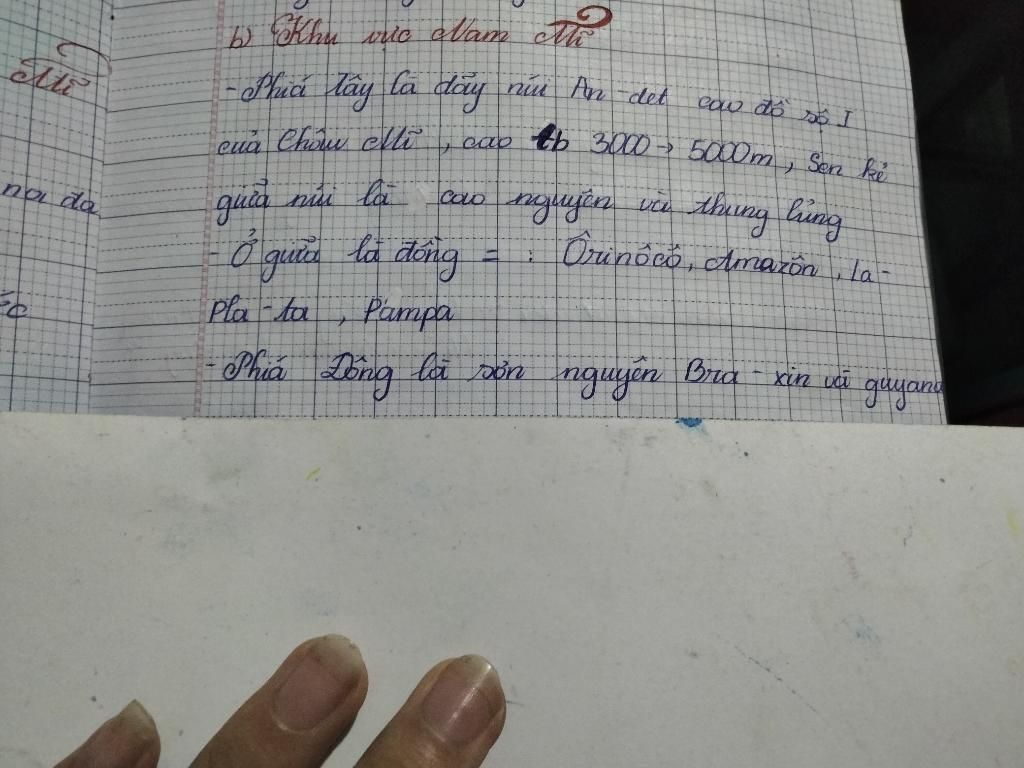 b) Khu vực Nam Mĩ
Mĩ
- Phiá tây là dãy núi An-det cao đồ sộ I
cuả Châu Mĩ, cao tb 3000 → 5000m, Sen kẻ
nơi đa
giưã núi là cao nguyên và thung lũng
- Ở giưã là đồng = : Ôrinôcô, Amazôn, la-
Pla-ta, Pampa
- Phiá Đông là sơn nguyên Bra-xin và guyana